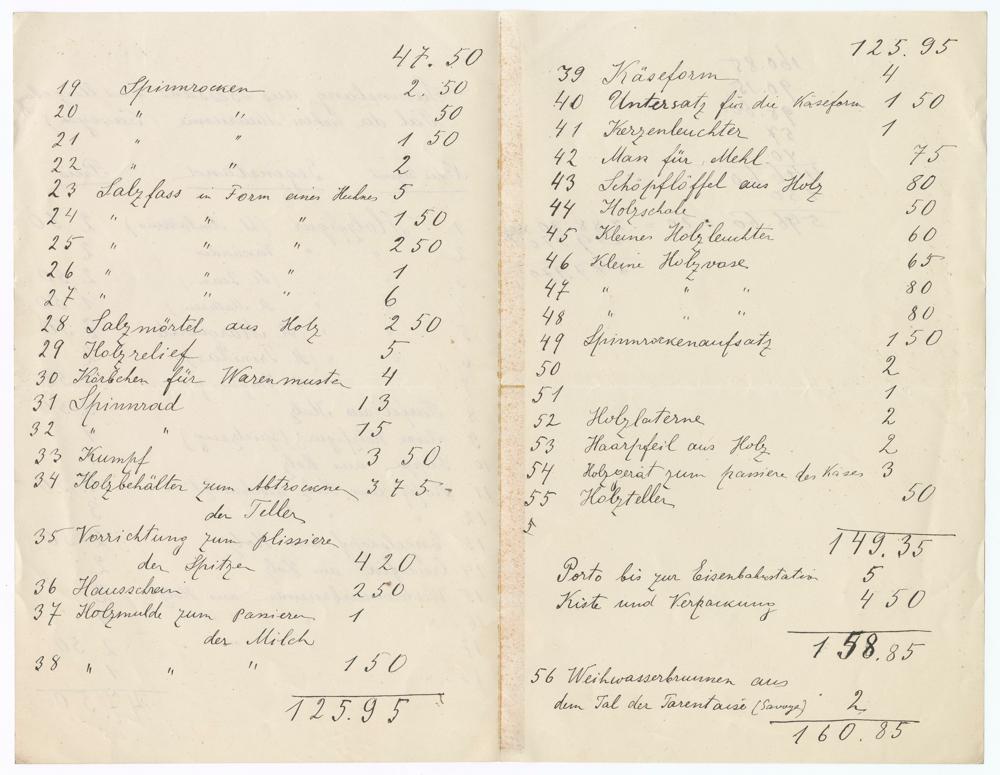 47.50
19 Spinnrocken 2.50
20 " " 50
21 " " 1 50
22 " " 2
23 Salzfass in Form eines Huhnes 5
24 " " " 1 50
25 " " " 2 50
26 " " " 1
27 " " " 6
28 Salzmörtel aus Holz 2 50
29 Holzrelief 5
30 Körbchen für Warenmuster 4
31 Spinnrad 13
32 " " 15
33 Kumpf 3 50
34 Holzbehälter zum Abtrocknen 3 75-
der Teller
35 Vorrichtung zum plissieren
der Spitzen 4 20
36 Hausschrein 2 50
37 Holzmulde zum Passieren 1
der Milch
38 " " " 1 50
125.95
125.95
39 Käseform 4
40 Untersatz für die Käseform 1 50
41 Kerzenleuchter 1
42 Mass für Mehl 75
43 Schöpflöffel aus Holz 80
44 Holzschale 50
45 Kleines Holzleuchter 60
46 Kleine Holzvase 65
47 " " " 80
48 " " " 80
49 Spinnrockenaufsatz 1 50
50 2
51 1
52 Holzlaterne 2
53 Haarpfeil aus Holz 2
54 Holzgerät zum passieren des Käses 3
55 Holzteller 50
5
149.35
Porto bis zur Eisenbahnstation 5
Kiste und Verpackung 4 50
158.85
56 Weihwasserbrunnen aus
dem Tal der Tarentaise (Savoye) 2
160.85